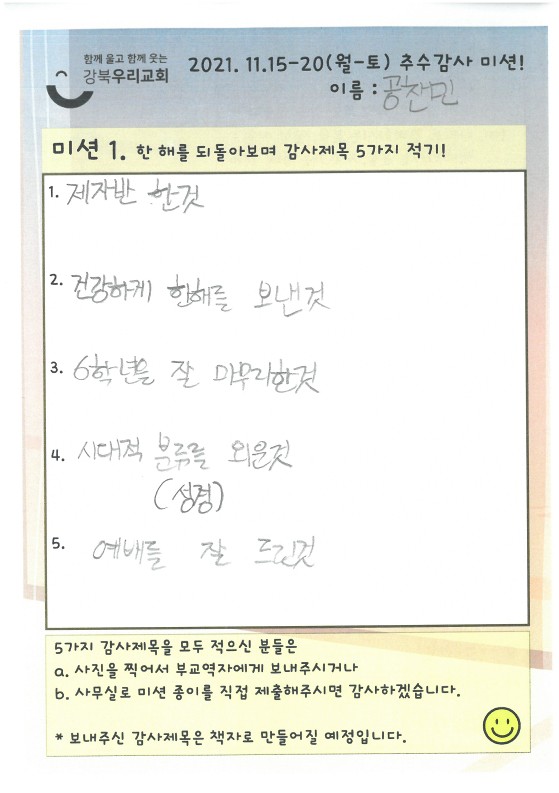 함께 울고 함께 웃는
강북우리교회
2021. 11.15-20(월-토) 추수감사 미션!
이름 : 공찬민
미션 1. 한 해를 되돌아보며 감사제목 5가지 적기!
1. 제자반 한것
2. 건강하게 한해를 보낸것
3. 6학년을 잘 마무리한것
4. 시대적 분류를 외운것
(성경)
5. 예배를 잘 드린것
5가지 감사제목을 모두 적으신 분들은
a. 사진을 찍어서 부교역자에게 보내주시거나
b. 사무실로 미션 종이를 직접 제출해주시면 감사하겠습니다.
* 보내주신 감사제목은 책자로 만들어질 예정입니다.